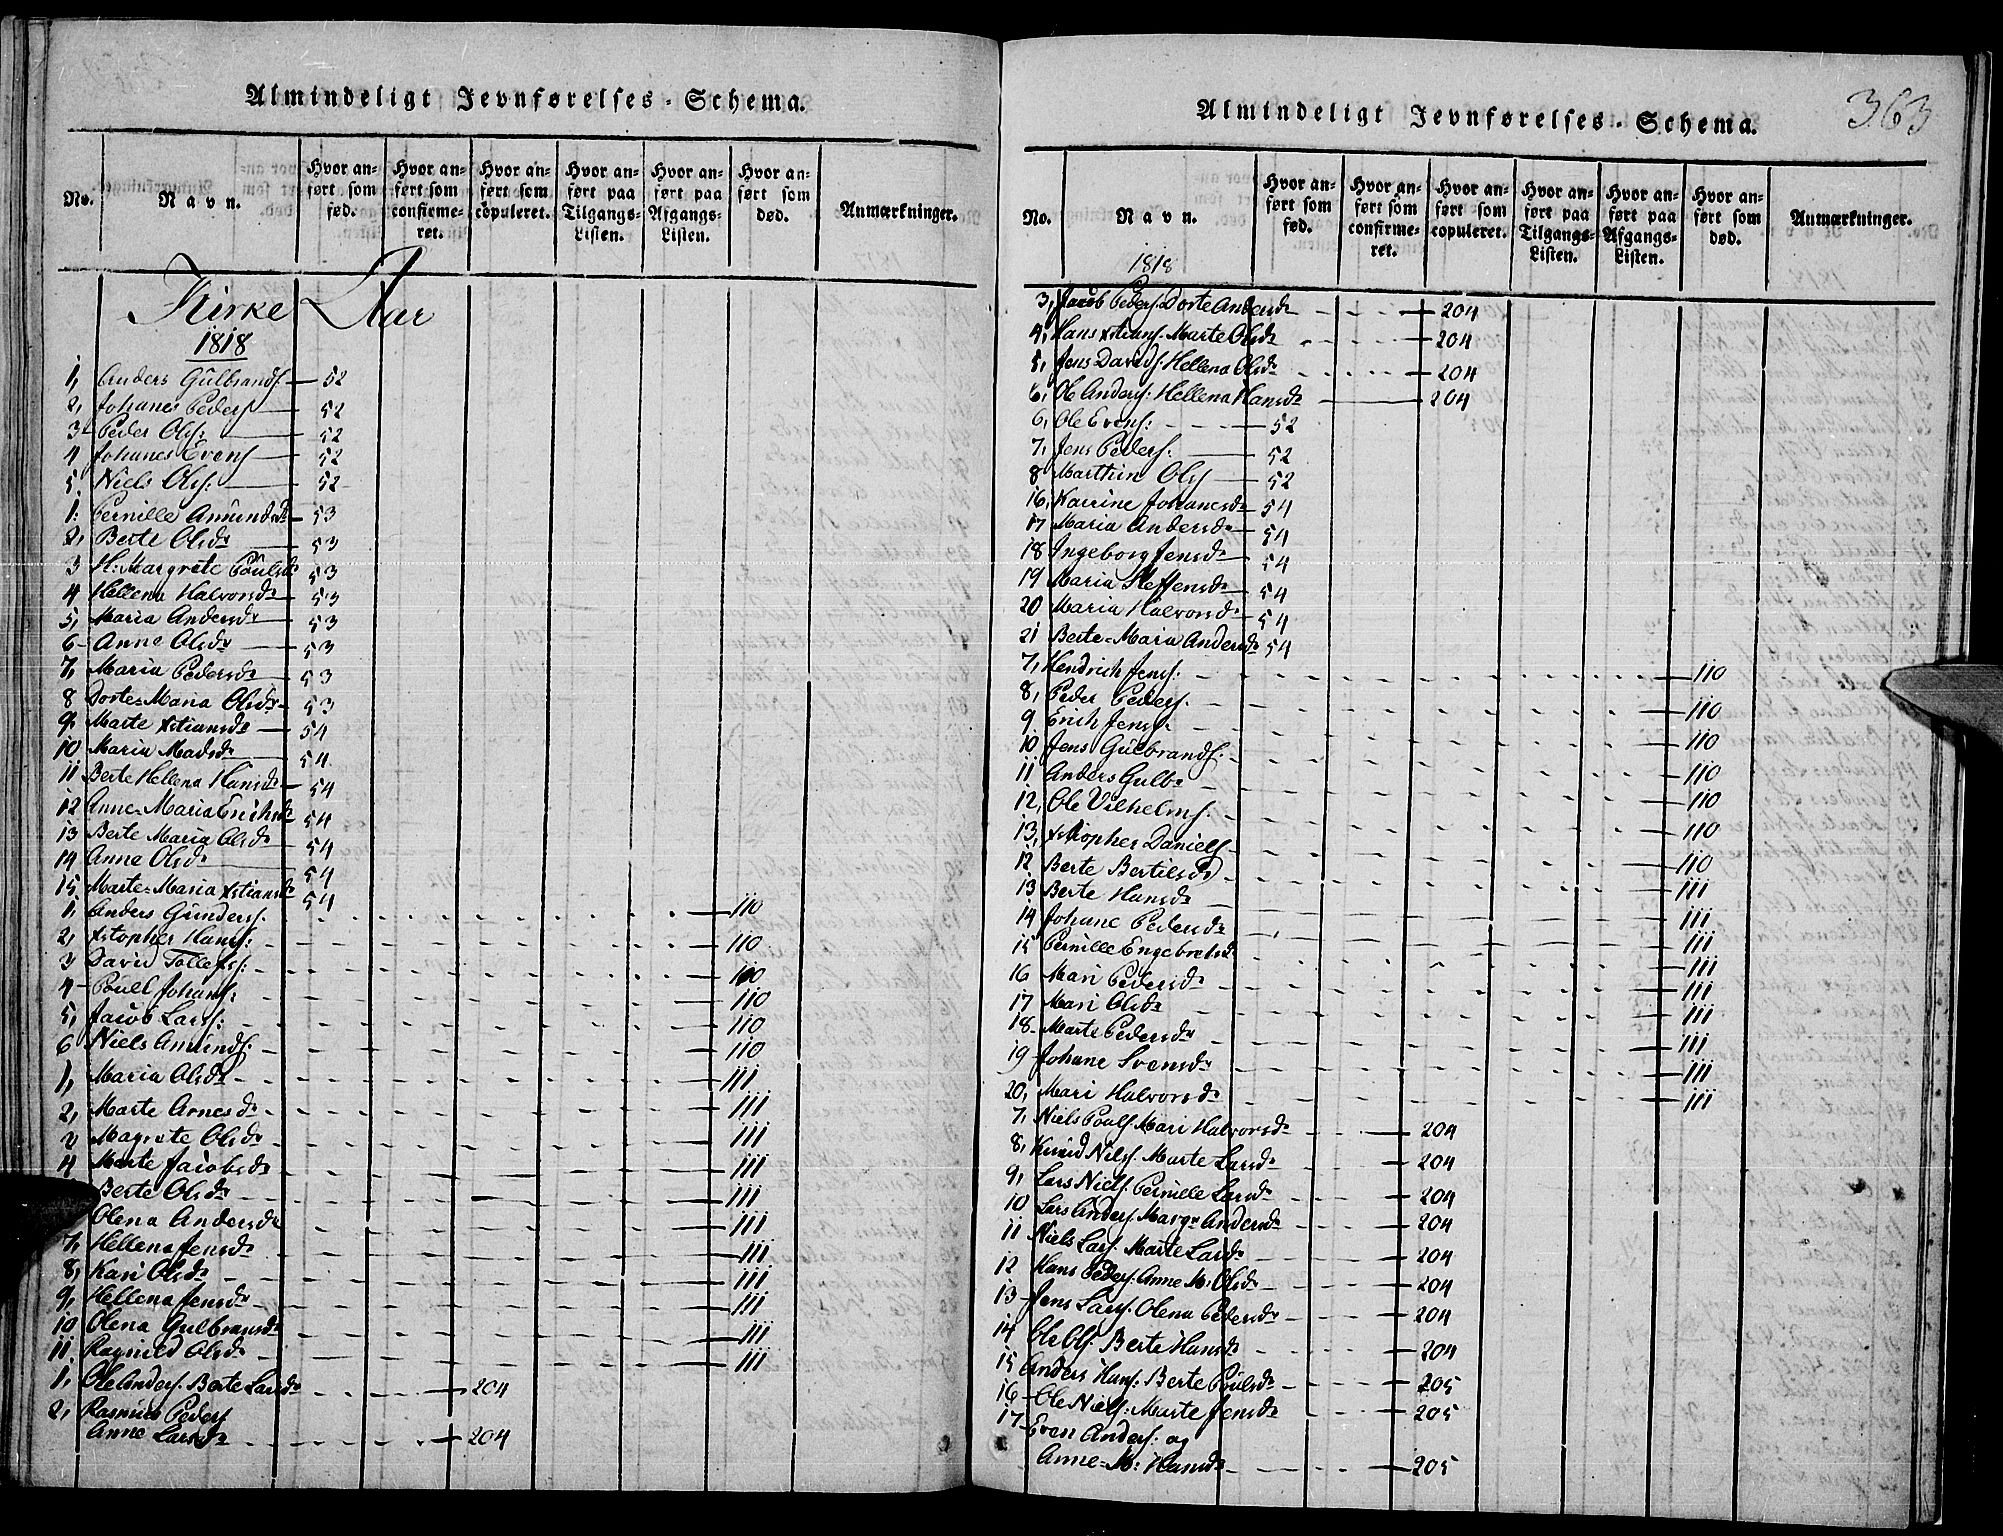 Almindeligt Jevnførelses-Schema.
No. Navn. Hvor anført som fød. Hvor anført som confirmeret. Hvor anført som copuleret. Hvor anført paa Tilgangs-Listen. Hvor anført paa Afgangs-Listen. Hvor anført som død. Anmærkninger.
Kirke Aar
1818
1, Anders Gulbrands. 52
2, Johanes Peders. 52
3 Peder Ols: 52
4 Johanes Evens 52
5 Niels Ols: 52
1: Pernille Amundsdr 53
2, Berte Olsdr 53
3 H: Margrete Poulsdr 53
4 Hellena Halvorsdr 53
5, Maria Andersdr 53
6 Anne Olsdr 53
7, Maria Pedersdr 53
8 Dorte=Maria Olsdr 53
9, Marte Xstiansdr 54
10 Maria Madsdr 54
11 Berte Hellena Hansdr 54
12 Anne=Maria Erichsdr 54
13 Berte Maria Olsdr 54
14 Anne Olsdr 54
15 Marte=Maria Xstiansdr 54
1, Anders Gunders. 110
2, Xstopher Hans: 110
3 David Tollefs: 110
4 Poull Johans: 110
5, Jacob Lars: 110
6 Niels Amunds: 110
1, Maria Olsdr 111
2, Marte Arnesdr 111
3 Magrete Olsdr 111
4 Marte Jacobsdr 111
Berte Olsdr 111
Olena Andersdr 111
7, Hellena Jensdr 111
8, Kari Olsdr 111
9, Hellena Jensdr 111
10 Olena Gulbransdr 111
11 Ragnild Olsdr 111
1, Ole Anders. Berte Larsdr 204
2, Rasmus Peders
Anne Larsdr 204
363
Almindeligt Jevnførelses-Schema.
No. Navn. Hvor anført som fød. Hvor anført som confirmeret. Hvor anført som copuleret. Hvor anført paa Tilgangs-Listen. Hvor anført paa Afgangs-Listen. Hvor anført som død. Anmærkninger.
1818
3, Jacob Peders. Dorte Andersdr 204
4, Hans Xstians. Marte Olsdr 204
5, Jens Davids. Hellena Olsdr 204
6, Ole Anders: Hellena Hansdr 204
6, Ole Evens: 52
7, Jens Peders. 52
8 Marthin Ols 52
16, Karrine Johanesdr 54
17 Maria Andersdr 54
18 Ingeborg Jensdr 54
19 Maria Steffensdr 54
20 Maria Halvorsdr 54
21 Berte=Maria Andersdr 54
7, Hendrich Jens. 110
8, Peder Peders. 110
9 Erich Jens. 110
10 Jens Gulbrands. 110
11 Anders Gulbr 110
12, Ole Vilhelms. 110
13, Xstopher Daniels 110
12 Berte Bertilsdr 111
13 Berte Hansdr 111
14 Johane Pedersdr 111
15 Pernille Engebretsdr 111
16 Mari Pedersdr 111
17 Mari Olsdr 111
18 Marte Pedersdr 111
19 Johane Svensdr 111
20, Mari Halvorsdr 111
7, Niels Pouls. Mari Halvorsdr 204
8, Knud Nils. Marte Larsdr 204
9, Lars Niels. Pernille Larsdr 204
10 Lars Anders. Margr Andersdr 204
11 Niels Lars. Marte Larsdr 204
12 Hans Peders. Anne M: Olsdr 204
13 Jens Lars. Olena Pedersdr 204
14 Ole Ols. Berte Hansdr 204
15 Anders Hans. Berte Poulsdr 205
16 Ole Niels: Marte Jensdr 205
17 Even Anders: og
Anne=M: Hansdr 205